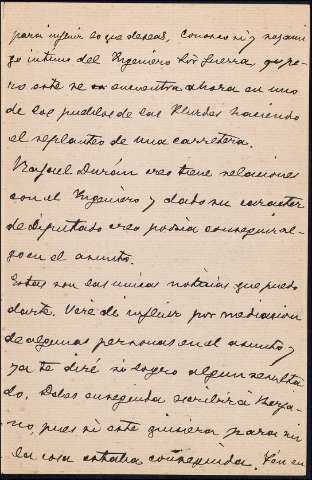 para influir lo que deseas, conozco si y soy ami
go intimo del Ingeniero Sr. Guerra, pe
ro este se encuentra ahora en uno
de los pueblos de las Hurdes haciendo
el replanteo de una carretera.
Rafael Durán creo tiene relaciones
con el Ingeniero y dado su caracter
de Diputado creo podria conseguir al-
go en el asunto.
Estas son las unicas noticias que puedo
darte. Veré de influir por mediacion
de algunas personas en el asunto y
ya te diré si logro algun resulta
do. Debes enseguida escribir á
no, pues si este quisiera para mi
la cosa estaba conseguida. Ten en